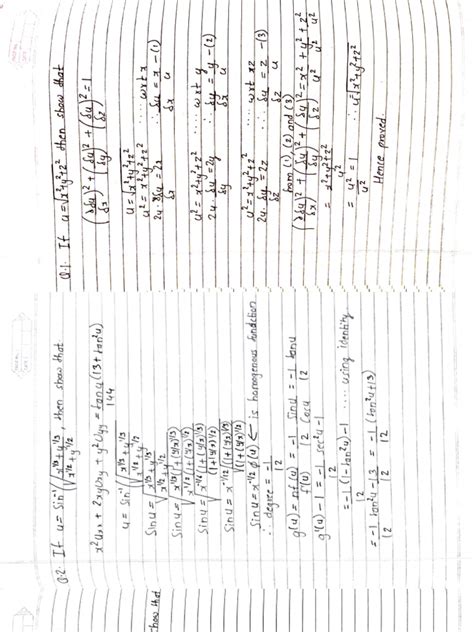 Q.1. If u=√x²+y²+z² then show that
(δu/δx)² + (δu/δy)² + (δu/δz)² = 1
u=√x²+y²+z²
u² = x²+y²+z² ... wrt x
2u·δu/δx = 2x ∴ δu/δx = x/u -(1)
u² = x²+y²+z² ... wrt y
2u·δu/δy = 2y ∴ δu/δy = y/u -(2)
u² = x²+y²+z² ... wrt z
2u·δu/δz = 2z ∴ δu/δz = z/u -(3)
from (1), (2) and (3)
(δu/δx)² + (δu/δy)² + (δu/δz)² = x²/u² + y²/u² + z²/u²
= x²+y²+z²/u²
= u²/u² = 1 ∴ u=√x²+y²+z²
Hence proved.
Q.2. If u = Sin⁻¹√x^1/3+y^1/3/x^1/2+y^1/2, then show that
x²Uxx + 2xyUxy + y²Uyy = tanu/144 (13+tan²u)
u = Sin⁻¹√x^1/3+y^1/3/x^1/2+y^1/2
Sinu = √x^1/3+y^1/3/x^1/2+y^1/2
Sinu = √x^1/3(1+(y/x)^1/3)/x^1/2(1+(y/x)^1/2)
Sinu = x^-1/12
is homogenous function
∴ degree = -1/12
g(u) = n f(u)/f'(u) = -1/12 Sinu/Cosu = -1/12 tanu
g'(u) - 1 = -1/12 sec²u - 1
.... using identity
= -1/12 tan²u - 13/12 = -1/12 (tan²u+13)
show that